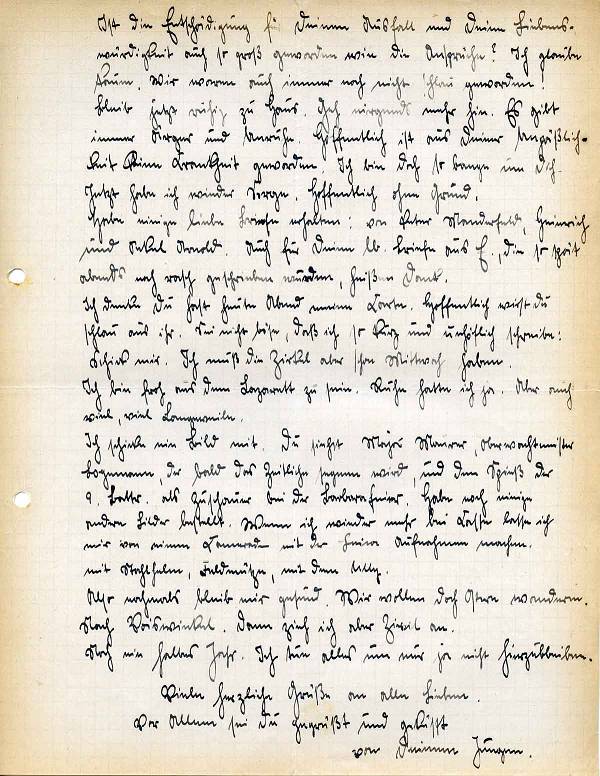 Ist die Entschädigung für Deinen Ausfall und Deine Liebens-
würdigkeit auch so groß geworden wie die Ansprüche? Ich glaube
kaum. Wir waren auch immer noch nicht schlau geworden!
Bleib jetzt ruhig zu Haus. Geh nirgends mehr hin. Es gibt
immer Sorgen und Unruhe. Hoffentlich ist aus Deiner Unpäßlich-
keit keine Krankheit geworden. Ich bin doch so bange um Dich.
Jetzt habe ich wieder Sorge. Hoffentlich ohne Grund.
Habe einige liebe Briefe erhalten: von Peter Manderfeld, Heinrich
und Onkel Arnold. Auch für Deinen lb. Brief aus E, die so spät
abends noch rasch geschrieben wurden, heißen Dank.
Ich denke Du hast heute Abend meine Karte. Hoffentlich wirst du
schlau aus ihr. Sei nicht böse, daß ich so kurz und unhöflich schreibe:
Schick mir. Ich muß die Zirkel aber schon Mittwoch haben.
Ich bin froh aus dem Lazarett zu sein. Ruhe hatte ich ja. Aber auch
viel, viel Langeweile.
Ich schicke ein Bild mit. Du siehst Major Maurer, Oberwachtmeister
Bogemann, der bald das Zeitliche segnen wird, und dem Spieß der
9. Batter. als Zuschauer bei der Barbarafeier. Habe noch einige
andere Bilder bestellt. Wenn ich wieder mehr bei Kasse lasse ich
mir von einem Kamerad mit der Leica Aufnahmen machen.
mit Stahlhelm, Feldmütze, mit dem
Also nochmals bleib mir gesund. Wir wollen doch Ostern wandern.
Nach Voiswinkel. Dann zieh ich aber Zivil an.
Noch ein halbes Jahr. Ich tue alles um nur ja nicht hierzubleiben.
Viele herzliche Grüße an alle Lieben.
Vor Allem sei du gegrüßt und geküßt
von Deinem Jungen.